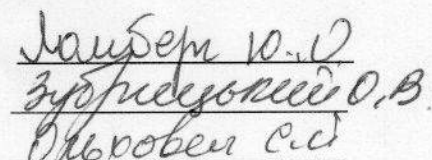 Ломберг Ю.О
Зубрицький О.В.
Ольховец С.І